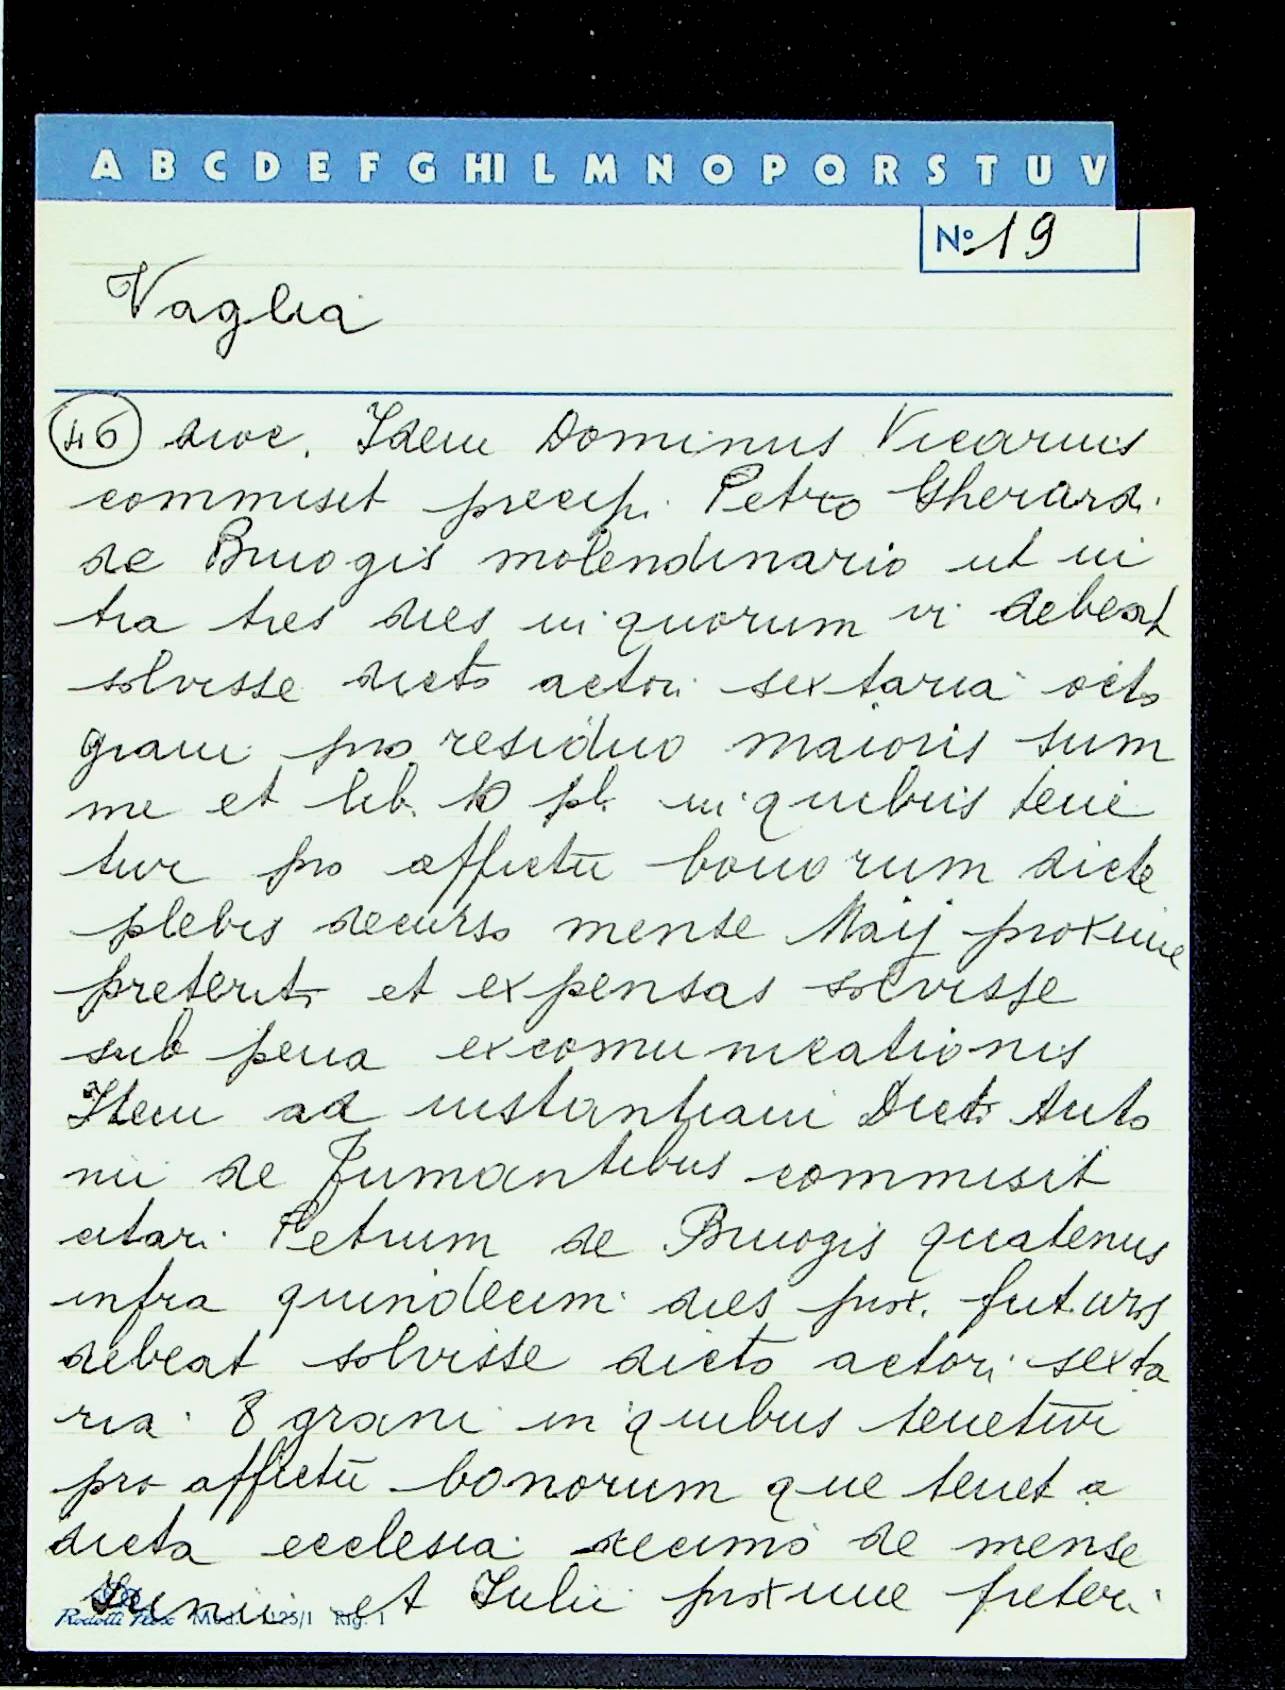 A B C D E F G HI L M N O P Q R S T U V
Nº 19
Vaglia
46 dioc. Idem Dominus Vicarius
commisit precipi Petro Gherardi
de Bruogis molendinario ut in
tra tres dies in quorum vi debeat
solvisse dicto actori sextaria octo
grani pro residuo maioris sum
me et lib. 10 pl. in quibus tene
tur pro affictu bonorum dicte
plebis decurso mense Maij proxime
preterito et expensas solvisse
sub pena excomunicationis
Item ad instantiam Dicti Anto
nii de Fumantibus commisit
citari Petrum de Bruogis quatenus
infra quindecim dies prox. futuros
debeat solvisse dicto actori sexta
ria 8 grani in quibus tenetur
pro affictu bonorum que tenet a
dicta ecclesia de mense
Iunii et Iulii proxime preteri
Mod. 125/1 Rig. 1